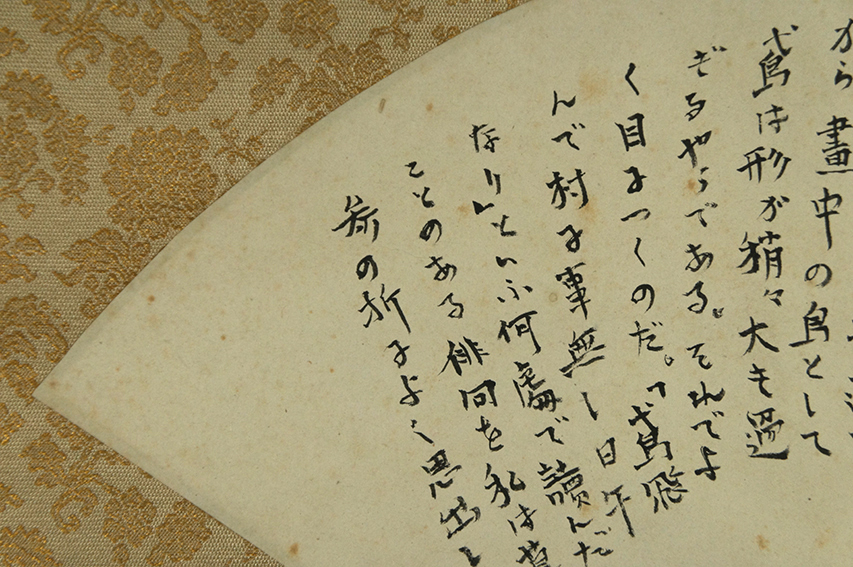 から 畫中の鳥として
鳶は形が稍々大き過
ぎるやうである。それでよ
く目につくのだ。「鳶飛
んで村に事無し日午
なり」といふ何處で讀んだ
ことのある俳句を私は
の折によく思出し